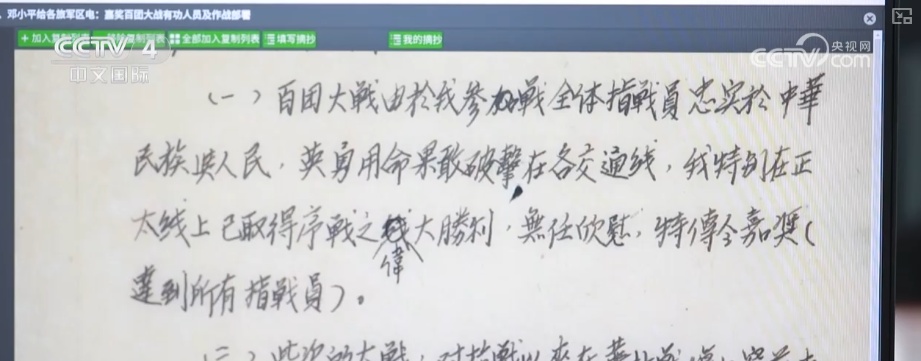 邓小平给各旅军区电：嘉奖百团大战有功人员及作战部署
+ 加入复制列表 移除复制列表 全部加入复制列表 填写摘抄 我的摘抄
CCTV 4
中文国际
央视网
CCTV.com
（一）百团大戰由於我參加戰全体指戰員忠实於中華
民族與人民，英勇用命果敢破擊在各交通线，我特别在正
太线上已取得序戰之偉大勝利，無任欣慰，特傳令嘉奖（
達到所有指戰員）。
（二）此次的大戰，对抗戰以來在華北戰